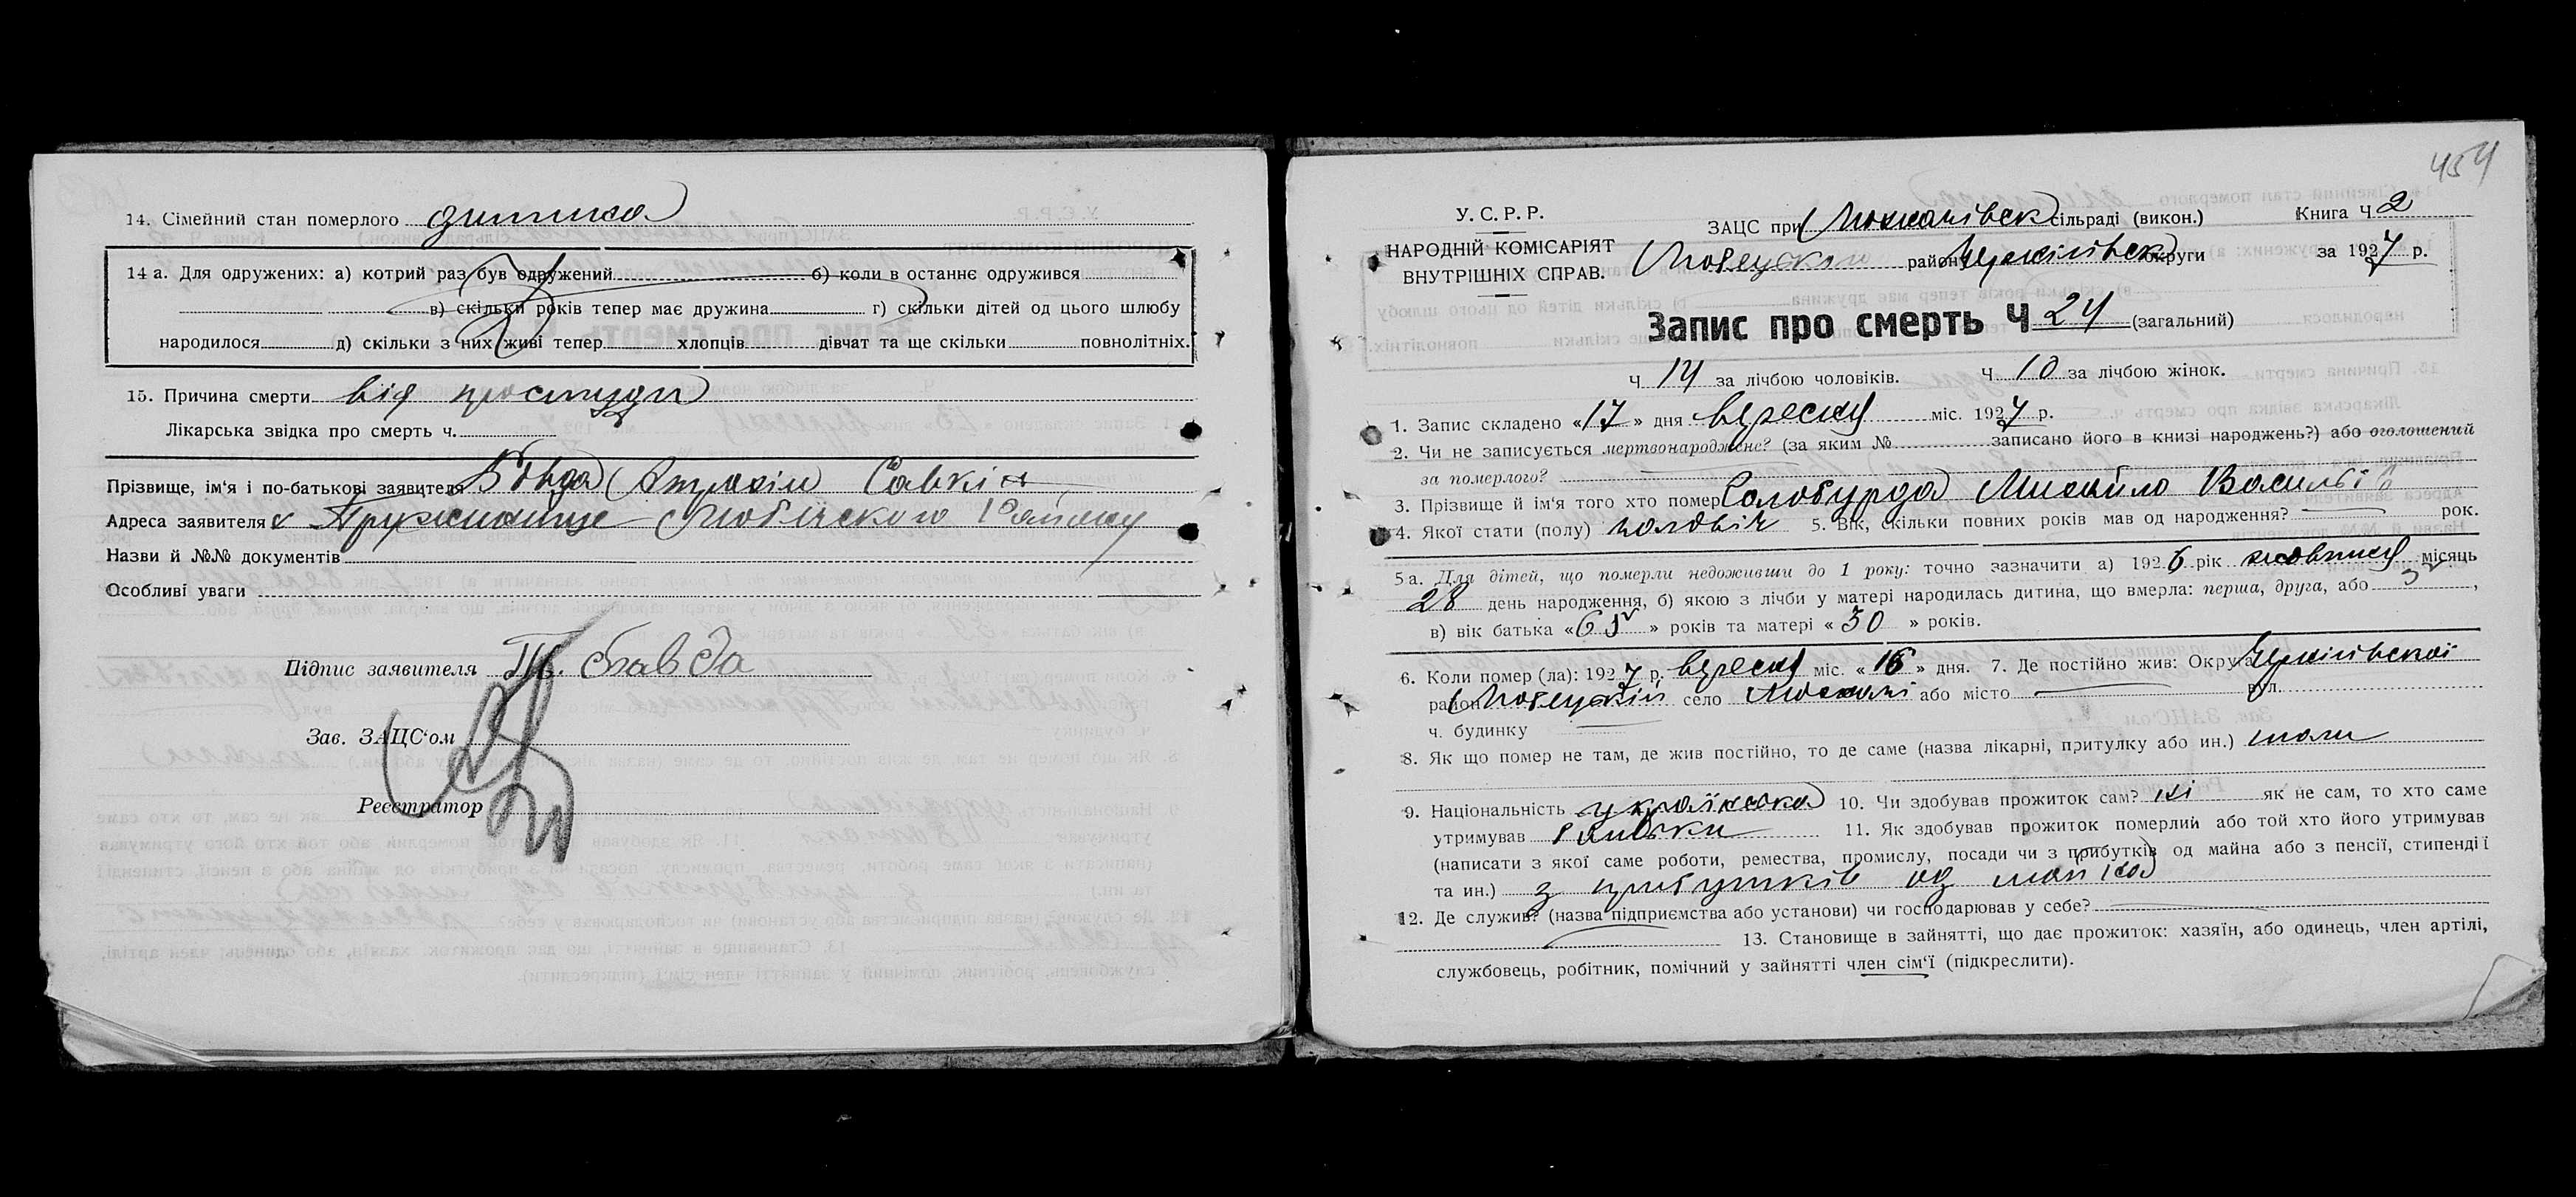 14. Сімейний стан померлого дитина
14 а. Для одружених: а) котрий раз був одружений б) коли в останнє одружився
в) скільки років тепер має дружина г) скільки дітей од цього шлюбу
народилося д) скільки з них живі тепер хлопців дівчат та ще скільки повнолітніх.
15. Причина смерти від простуди
Лікарська звідка про смерть ч.
Прізвище, ім'я і по-батькові заявителя Савкін
Адреса заявителя
Назви й №№ документів
Особливі уваги
Підпис заявителя
Зав. ЗАЦС'ом
Реєстратор
454
У. С. Р. Р.
НАРОДНІЙ КОМІСАРІЯТ
ВНУТРІШНІХ СПРАВ.
ЗАЦС при сільраді (викон.) Книга Ч. 2
район округи за 1927 р.
Запис про смерть Ч 24 (загальний)
Ч 14 за лічбою чоловіків. Ч 10 за лічбою жінок.
1. Запис складено «17» дня вересня міс. 1927 р.
2. Чи не записується мертвонароджене? (за яким № записано його в книзі народжень?) або оголошений
за померлого?
3. Прізвище й ім'я того хто помер Михайло Василів
4. Якої стати (полу) чоловіч 5. Вік, скільки повних років мав од народження? рок.
5 а. Для дітей, що померли недоживши до 1 року: точно зазначити а) 1926 рік жовтня місяць
28 день народження, б) якою з лічби у матері народилась дитина, що вмерла: перша, друга, або 3,
в) вік батька « » років та матері «30» років.
6. Коли помер (ла): 1927 р. вересня міс. «16» дня. 7. Де постійно жив: Округа Чернігівської
район село або місто вул.
ч. будинку
8. Як що помер не там, де жив постійно, то де саме (назва лікарні, притулку або ин.)
9. Національність українська 10. Чи здобував прожиток сам? ні як не сам, то хто саме
утримував батьки 11. Як здобував прожиток померлий або той хто його утримував
(написати з якої саме роботи, ремества, промислу, посади чи з прибутків од майна або з пенсії, стипендії
та ин.) з прибутків од майна
12. Де служив? (назва підприємства або установи) чи господарював у себе?
13. Становище в зайнятті, що дає прожиток: хазяїн, або одинець, член артілі,
службовець, робітник, помічний у зайнятті член сім'ї (підкреслити).